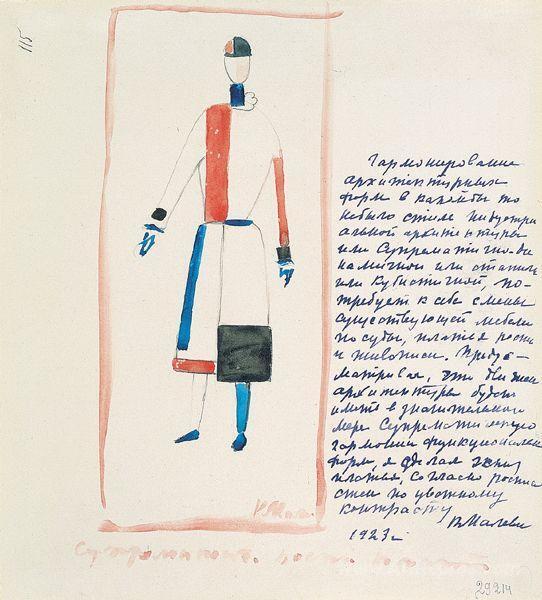 115
Гармонирование
архитектурных
форм в какой бы то
небыло стиле индустри
альной архитектуры
или Супрематично-ди
намичной или статич
или Кубистичной, по-
требует к себе смены
существующей мебели
посуды, платья росписи
и живописи. Предус-
матривая, что
архитектуры будет
иметь в значительной
мере Супрематическую
гармонию функциональных
форм, я сделал эскиз
платья, согласно росписи
стен по цветному
контрасту
К Малеви
1923г
К Мал
Супрематич.
29214